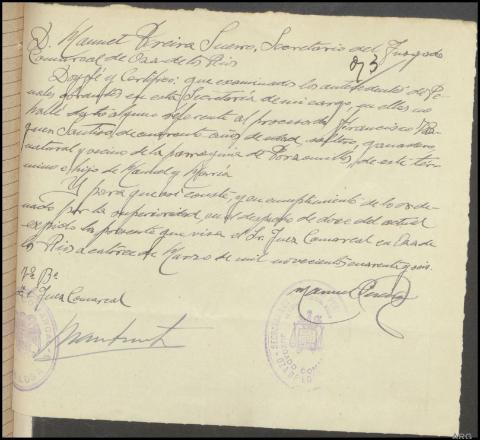 D. Manuel Pereira Suero, Secretario del Juzgado
Comarcal de Oza de los Rios
873
Doy fé y Certifico: que examinados los antecedentes de Pe-
nales obrantes en esta Secretaria de mi cargo, en ellos no
hallé dato alguno referente al procesado Francisco
de cuarenta años de edad, soltero, ganadero,
natural y vecino de la parroquia de de este tér-
mino e hijo de Manuel y Maria
Y para que asi conste, y en cumplimiento de lo orde-
nado por la superioridad en el despacho de doce del actual
expido la presente que visa el Sr. Juez Comarcal en Oza de
los Rios a catorce de Marzo de mil novecientos cuarenta y seis.
Vº Bº
El Juez Comarcal
Manuel Pereira